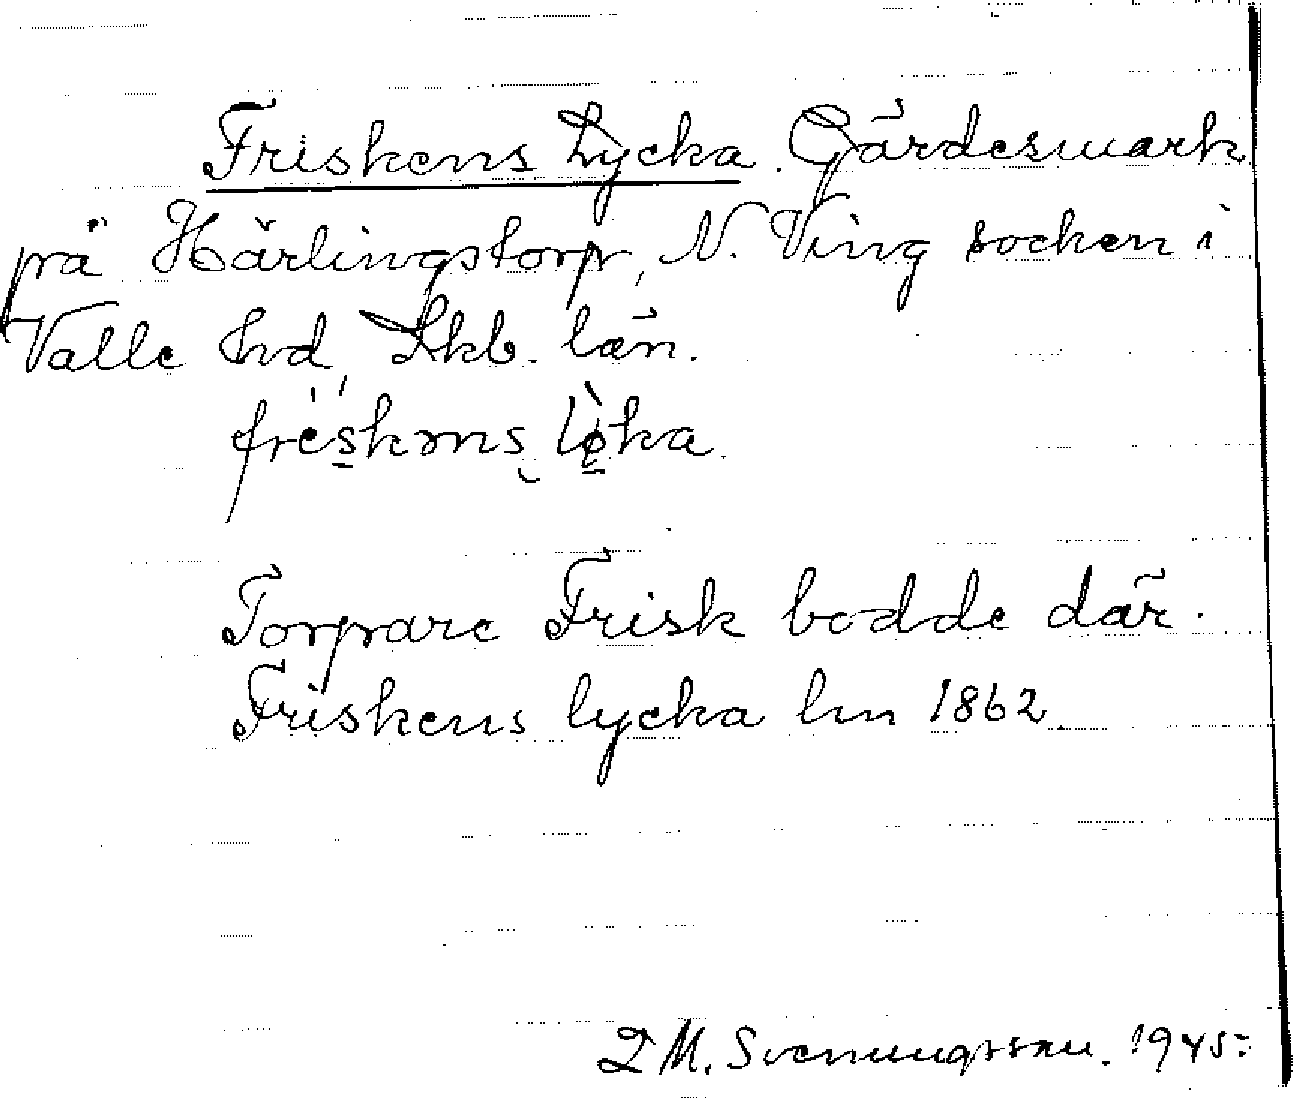 Friskens Lycka. Gärdesmark
på Härlingstorp, N. Ving socken i
Valle hd, Skb. län.
fréskəns lø̀ka.
Torpare Frisk bodde där.
Friskens lycka lm 1862.
M. Svenungsson. 1945.